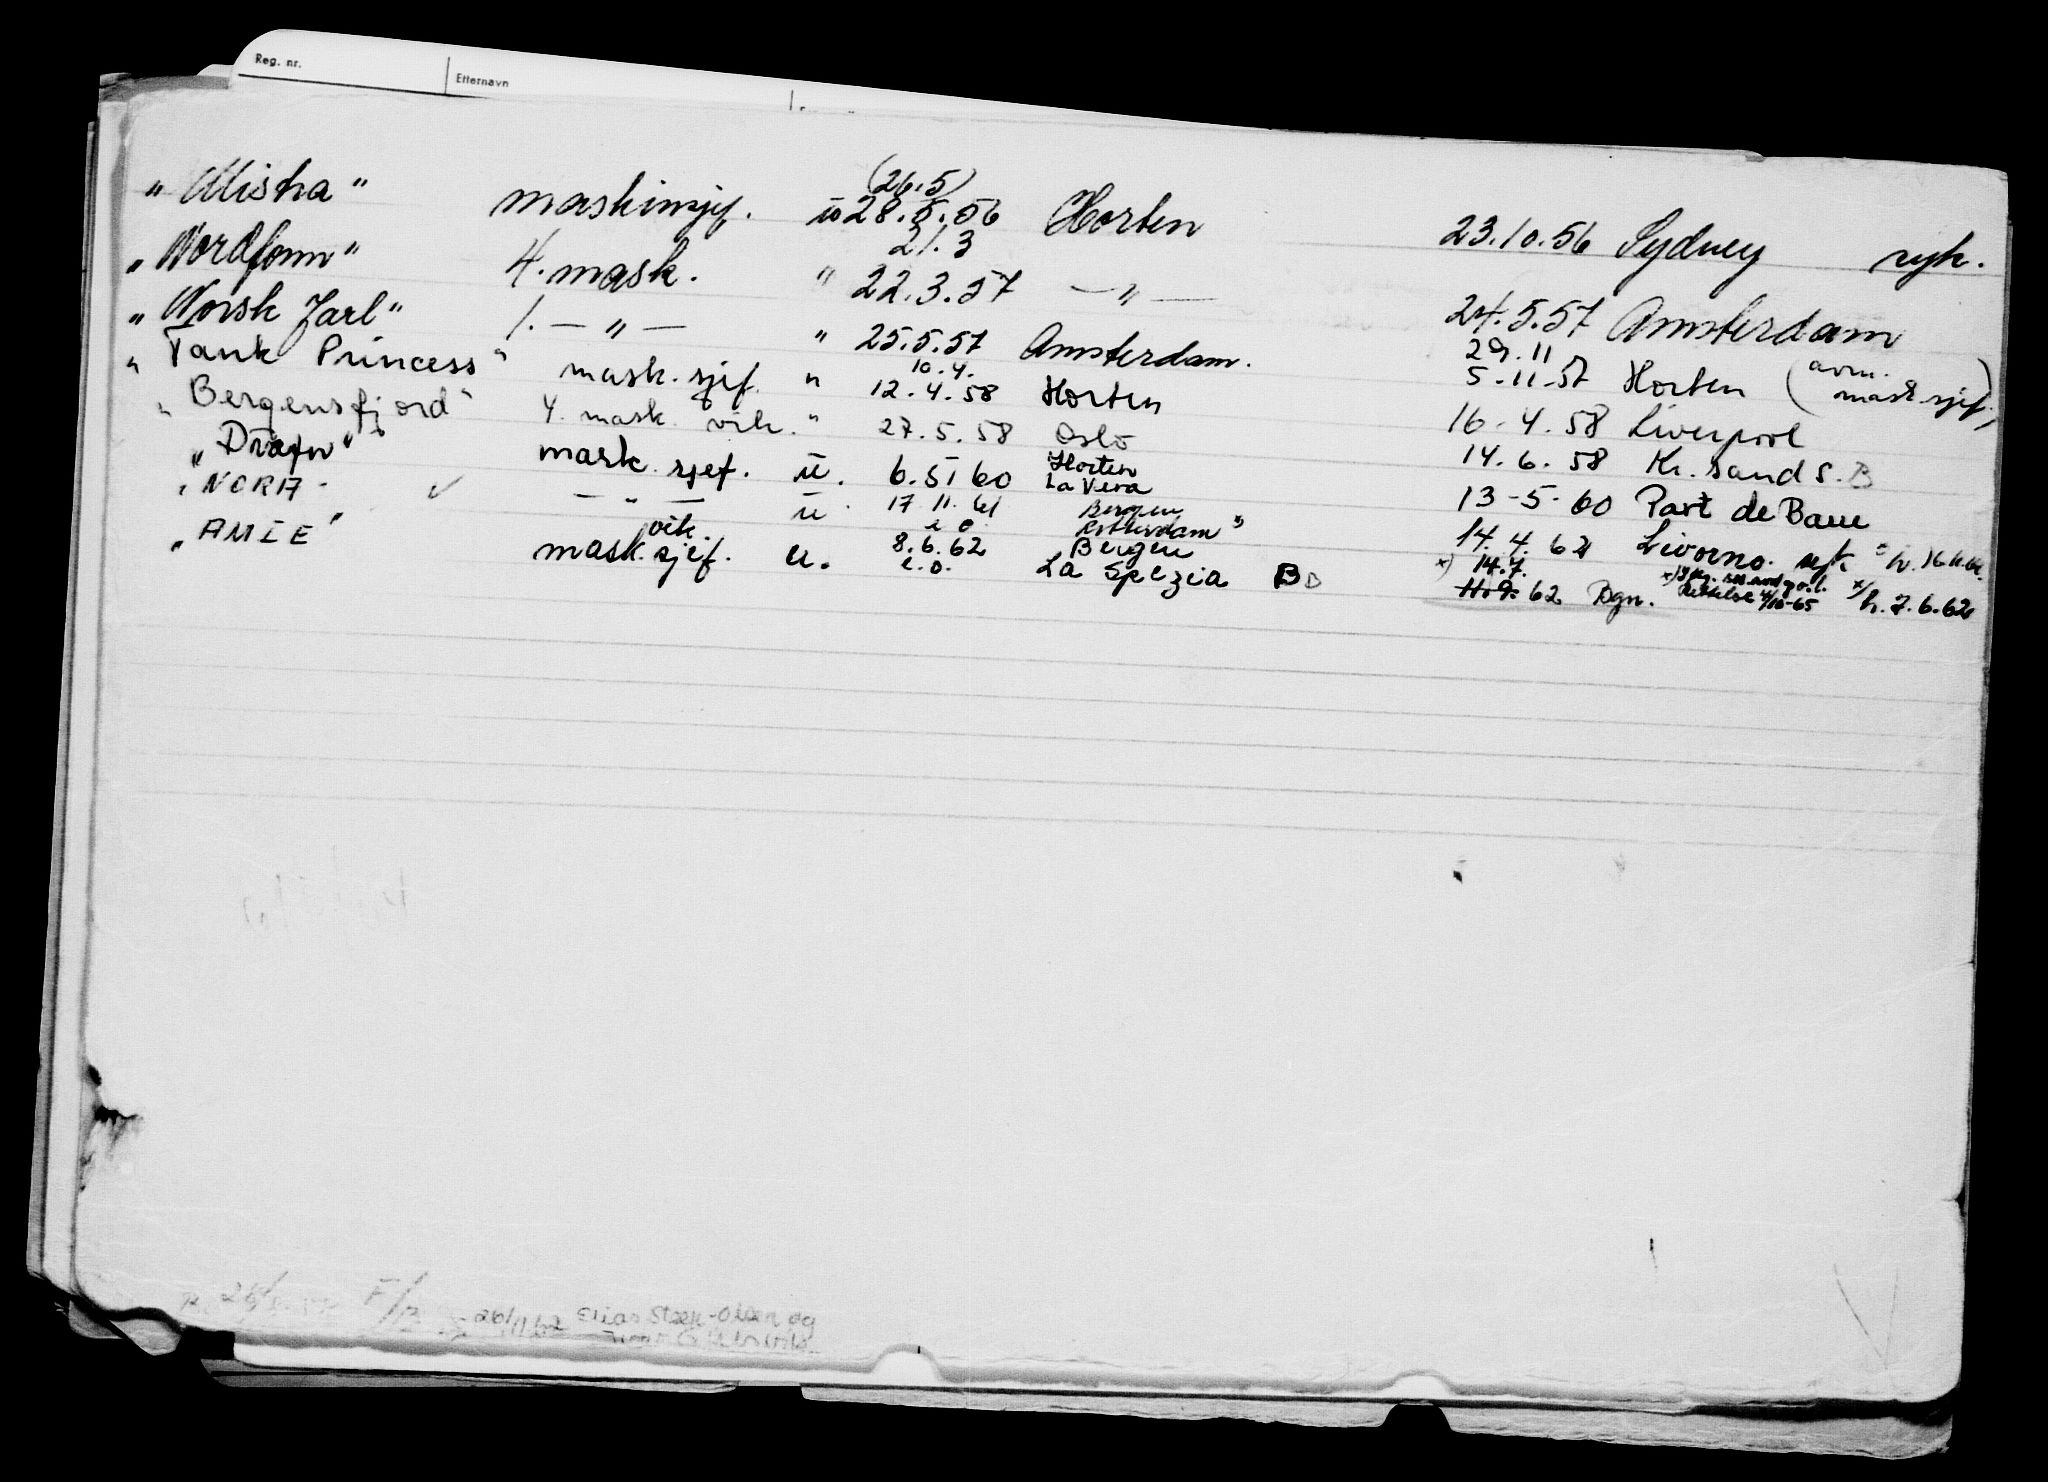 Reg. nr. Etternavn
(26.5)
"Mistra" maskinsjef. u 28.5.56 Horten 23.10.56 Sydney syk.
21.3
"Nordfonn" 4. mask. " 22.3.57 — " — 24.5.57 Amsterdam
"Norsk Jarl" 1. — " — " 25.5.57 Amsterdam. 29.11
5-11-57 Horten (avm. mask.sjef.)
10.4.
"Tank Princess" mask. sjef. " 12.4.58 Horten 16-4.58 Liverpool
"Bergensfjord" 4. mask. vik. " 27.5.58 Oslo 14.6.58 Kr.sand S. B
"Drafn" mask. sjef. u. 6.5 60 Horten La Vera 13-5-60 Port de Bouc
"NORA" — " — u. 17.11.61 Bergen Rotterdam 14.4.62 Livorno. syk
e.o.
"AMIE" vik. mask.sjef. u. 8.6.62 Bergen x) 14.7.
e.o. La Spezia B 11.9.62 Dgn. Rettelse 4/10-65 x/h. 7.6.62
26/11 62 Elias Steen-Olsen og